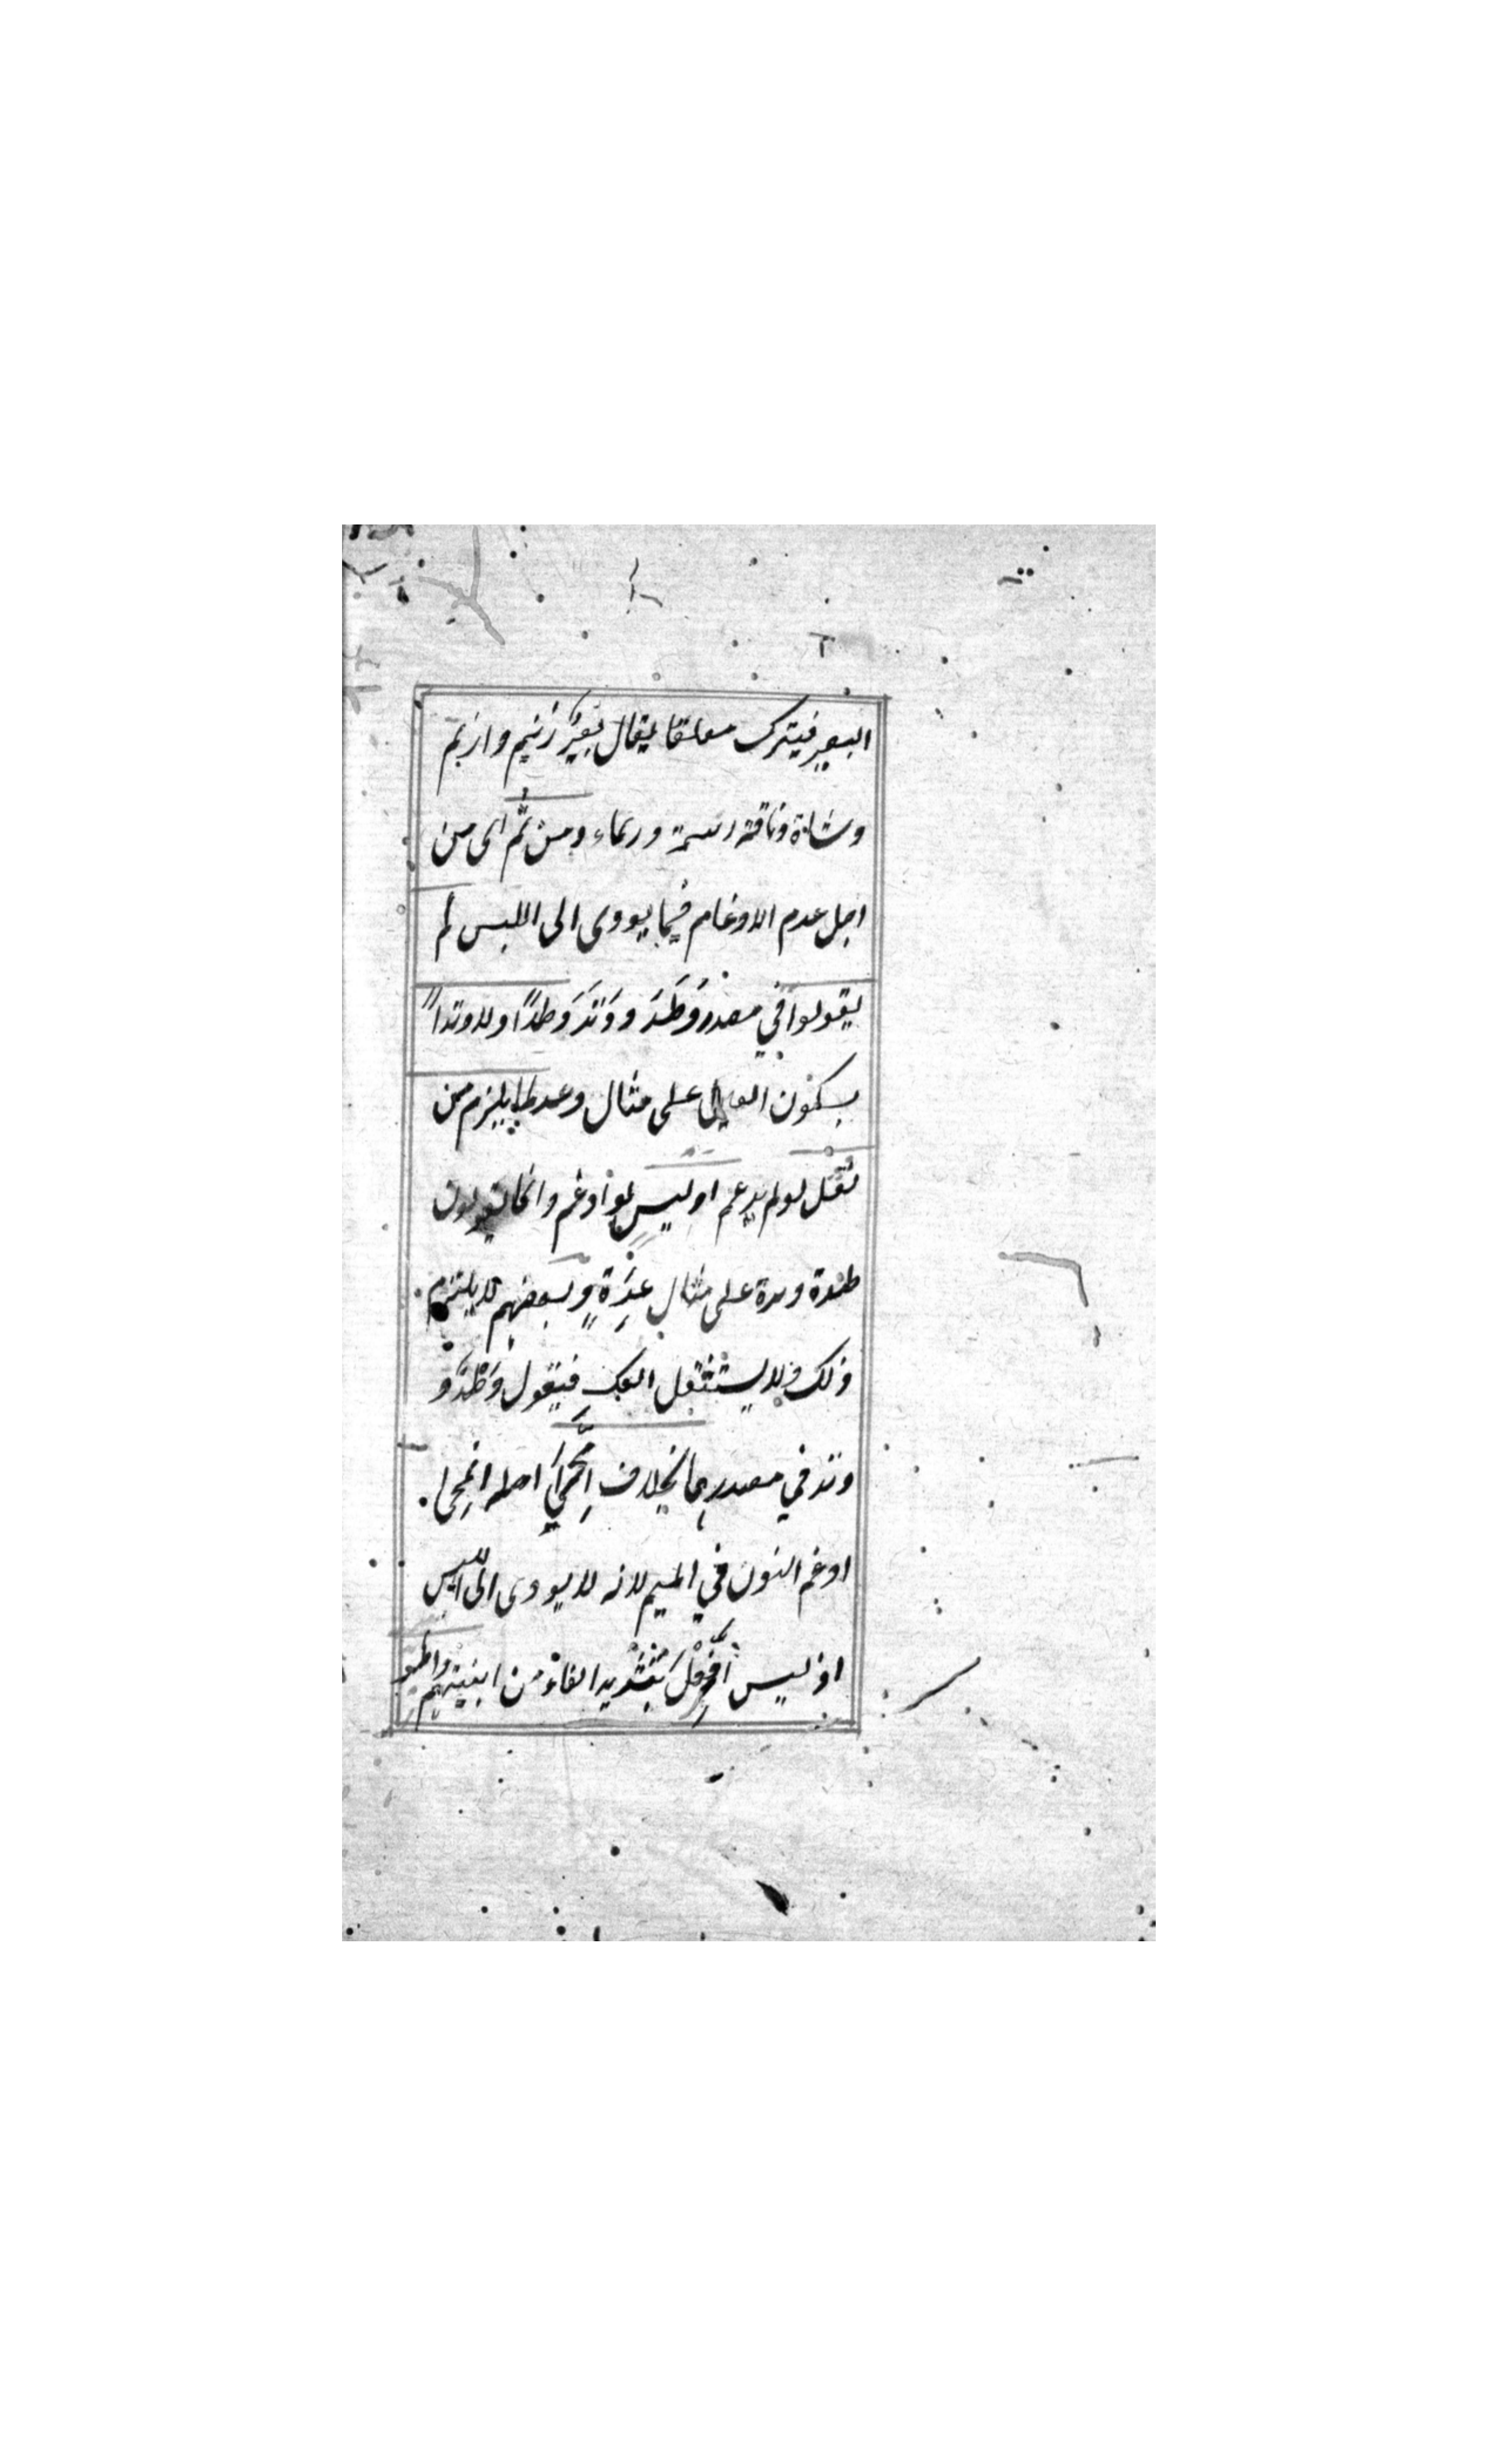 البعير فيترك معلقا يقال بَعِيْرٌ زنيم وازنم
وشاة وناقة زنمة وزنماء ومِنْ ثَمَّ اى من
اجل عدم الادغام فيما يودى الى اللبس لم
يقولوا في مصدر وَطَدَ ووَتَدَ وَطْدًا ولا وتداً
بسكون العين على مثال وعد لما يلزم من
ثقل لو لم يدغم او لبس لو ادغم وانما يقولون
طدة وتدة على مثال عِدَةٍ وبعضهم لا يلتزم
ذلك ولا يستثقل الفك فيقول وَطْدًا و
وتد في مصدريهما بخلاف اِمَّحَى اصله انمحى
ادغم النون في الميم لانه لا يودى الى اللبس
اذ ليس اِفَّعَلَ بتشديد الفاء من ابنيتهم واطير